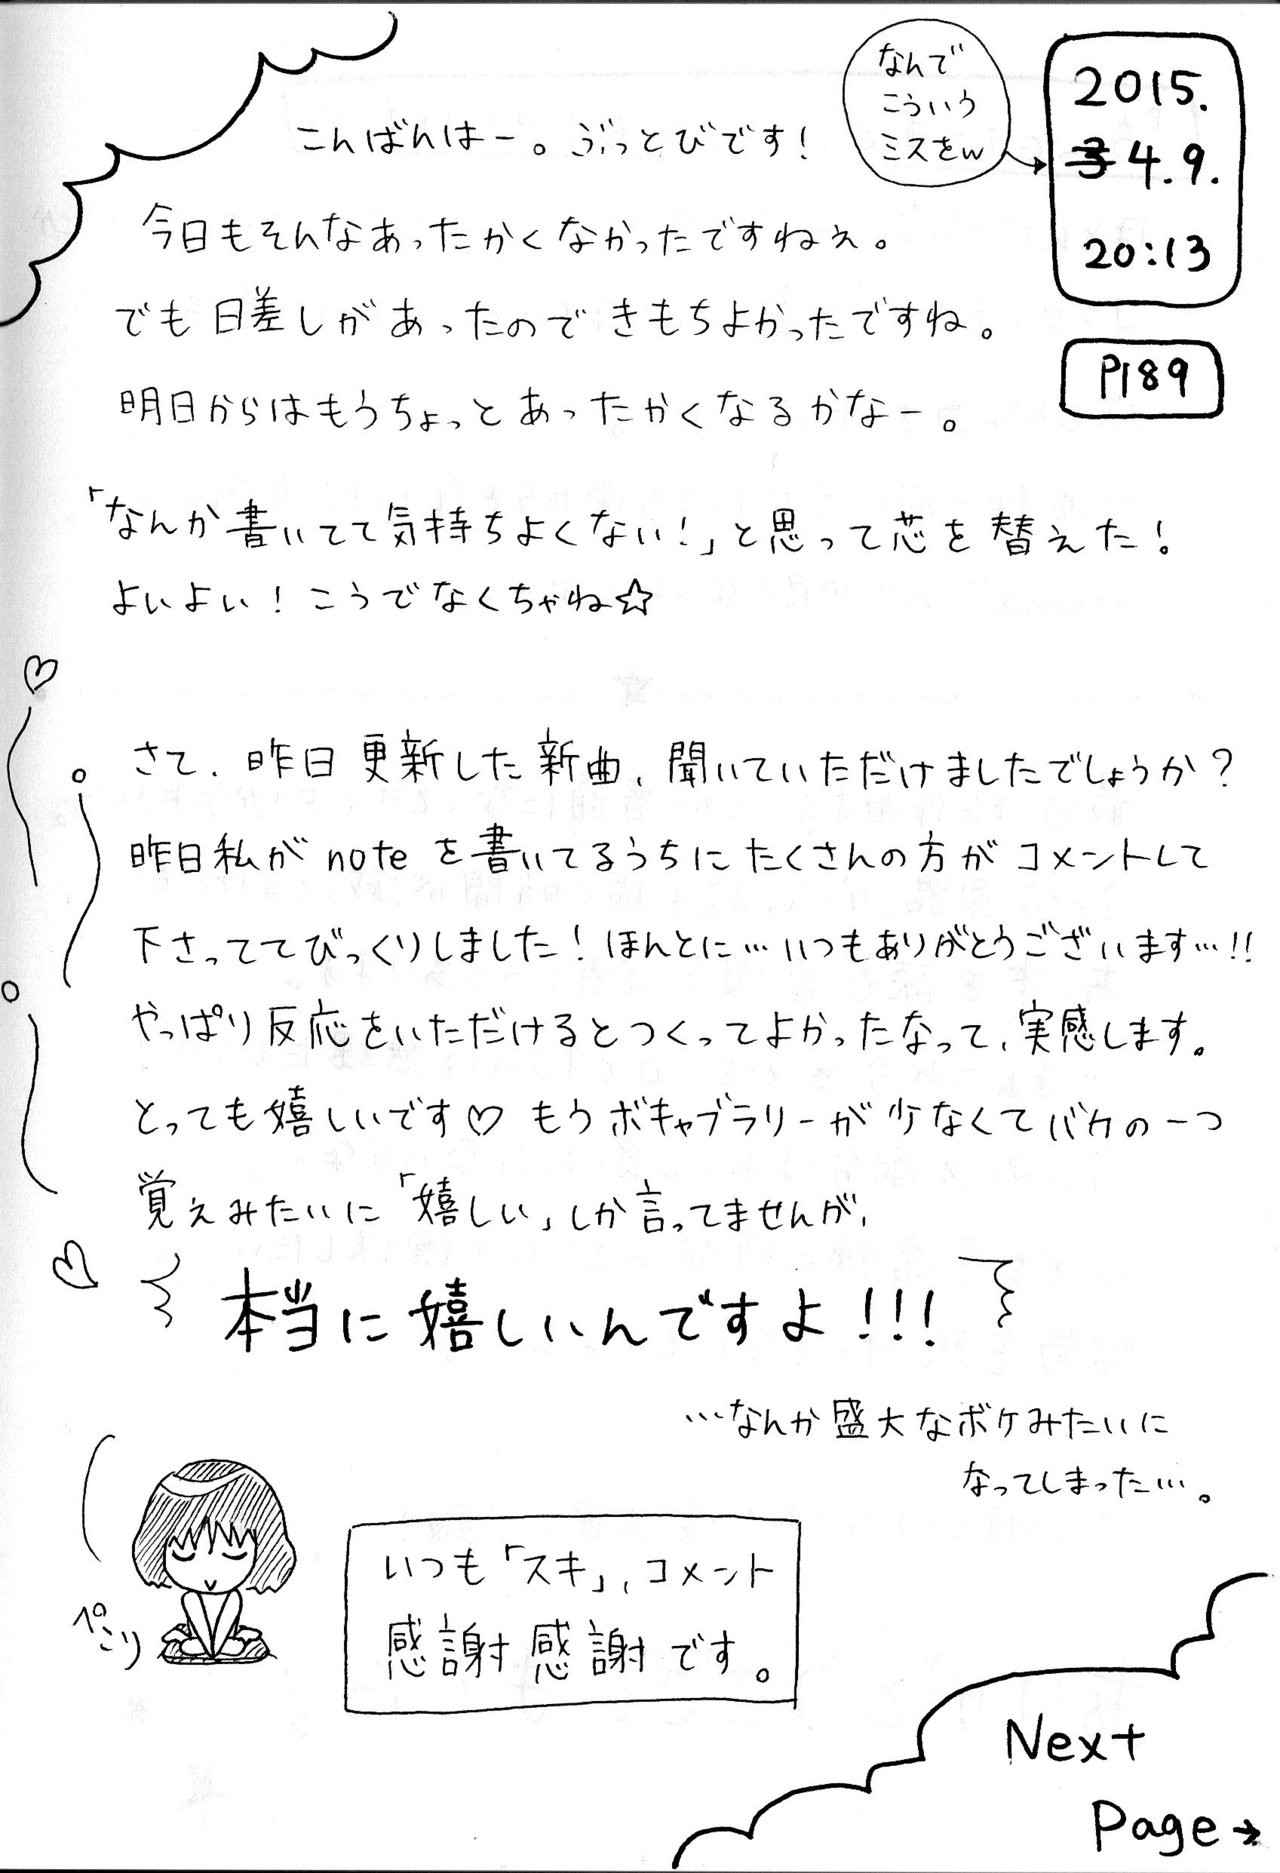 なんで
こういう
ミスをw
2015.
3 4.9.
20:13
P189
こんばんはー。ぶっとびです!
今日もそんなあったかくなかったですねぇ。
でも日差しがあったのできもちよかったですね。
明日からはもうちょっとあったかくなるかなー。
「なんか書いてて気持ちよくない!」と思って芯を替えた!
よいよい!こうでなくちゃね☆
さて、昨日更新した新曲、聞いていただけましたでしょうか?
昨日私がnoteを書いてるうちにたくさんの方がコメントして
下さっててびっくりしました!ほんとに…いつもありがとうございます…!!
やっぱり反応をいただけるとつくってよかったなって、実感します。
とっても嬉しいです♡もうボキャブラリーが少なくてバケの一つ
覚えみたいに「嬉しい」しか言ってませんが、
本当に嬉しいんですよ!!!
…なんか盛大なボケみたいに
なってしまった…。
ぺこり
いつも「スキ」、コメント
感謝感謝です。
Next
Page→